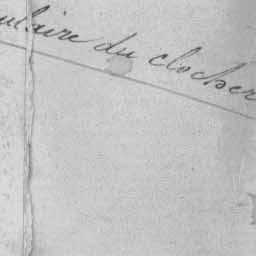 ulaire du clocher